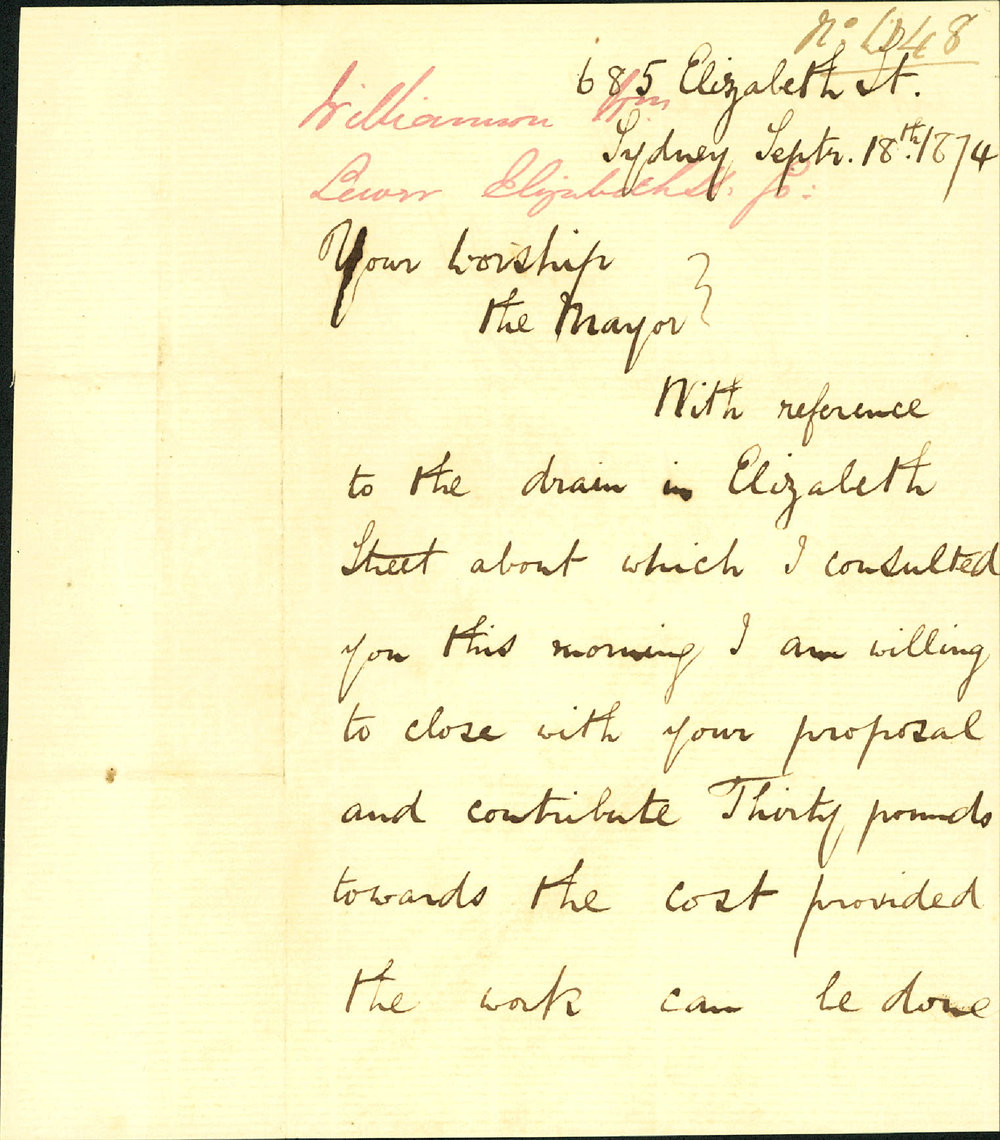 685 Elizabeth St.
Williamson Wm
Sydney Septr. 18th. 1874
Elizabeth St.
Your Worship
the Mayor
With reference
to the drain in Elizabeth
Street about which I consulted
you this morning I am willing
to close with your proposal
and contribute Thirty pounds
towards the cost provided
the work can be done